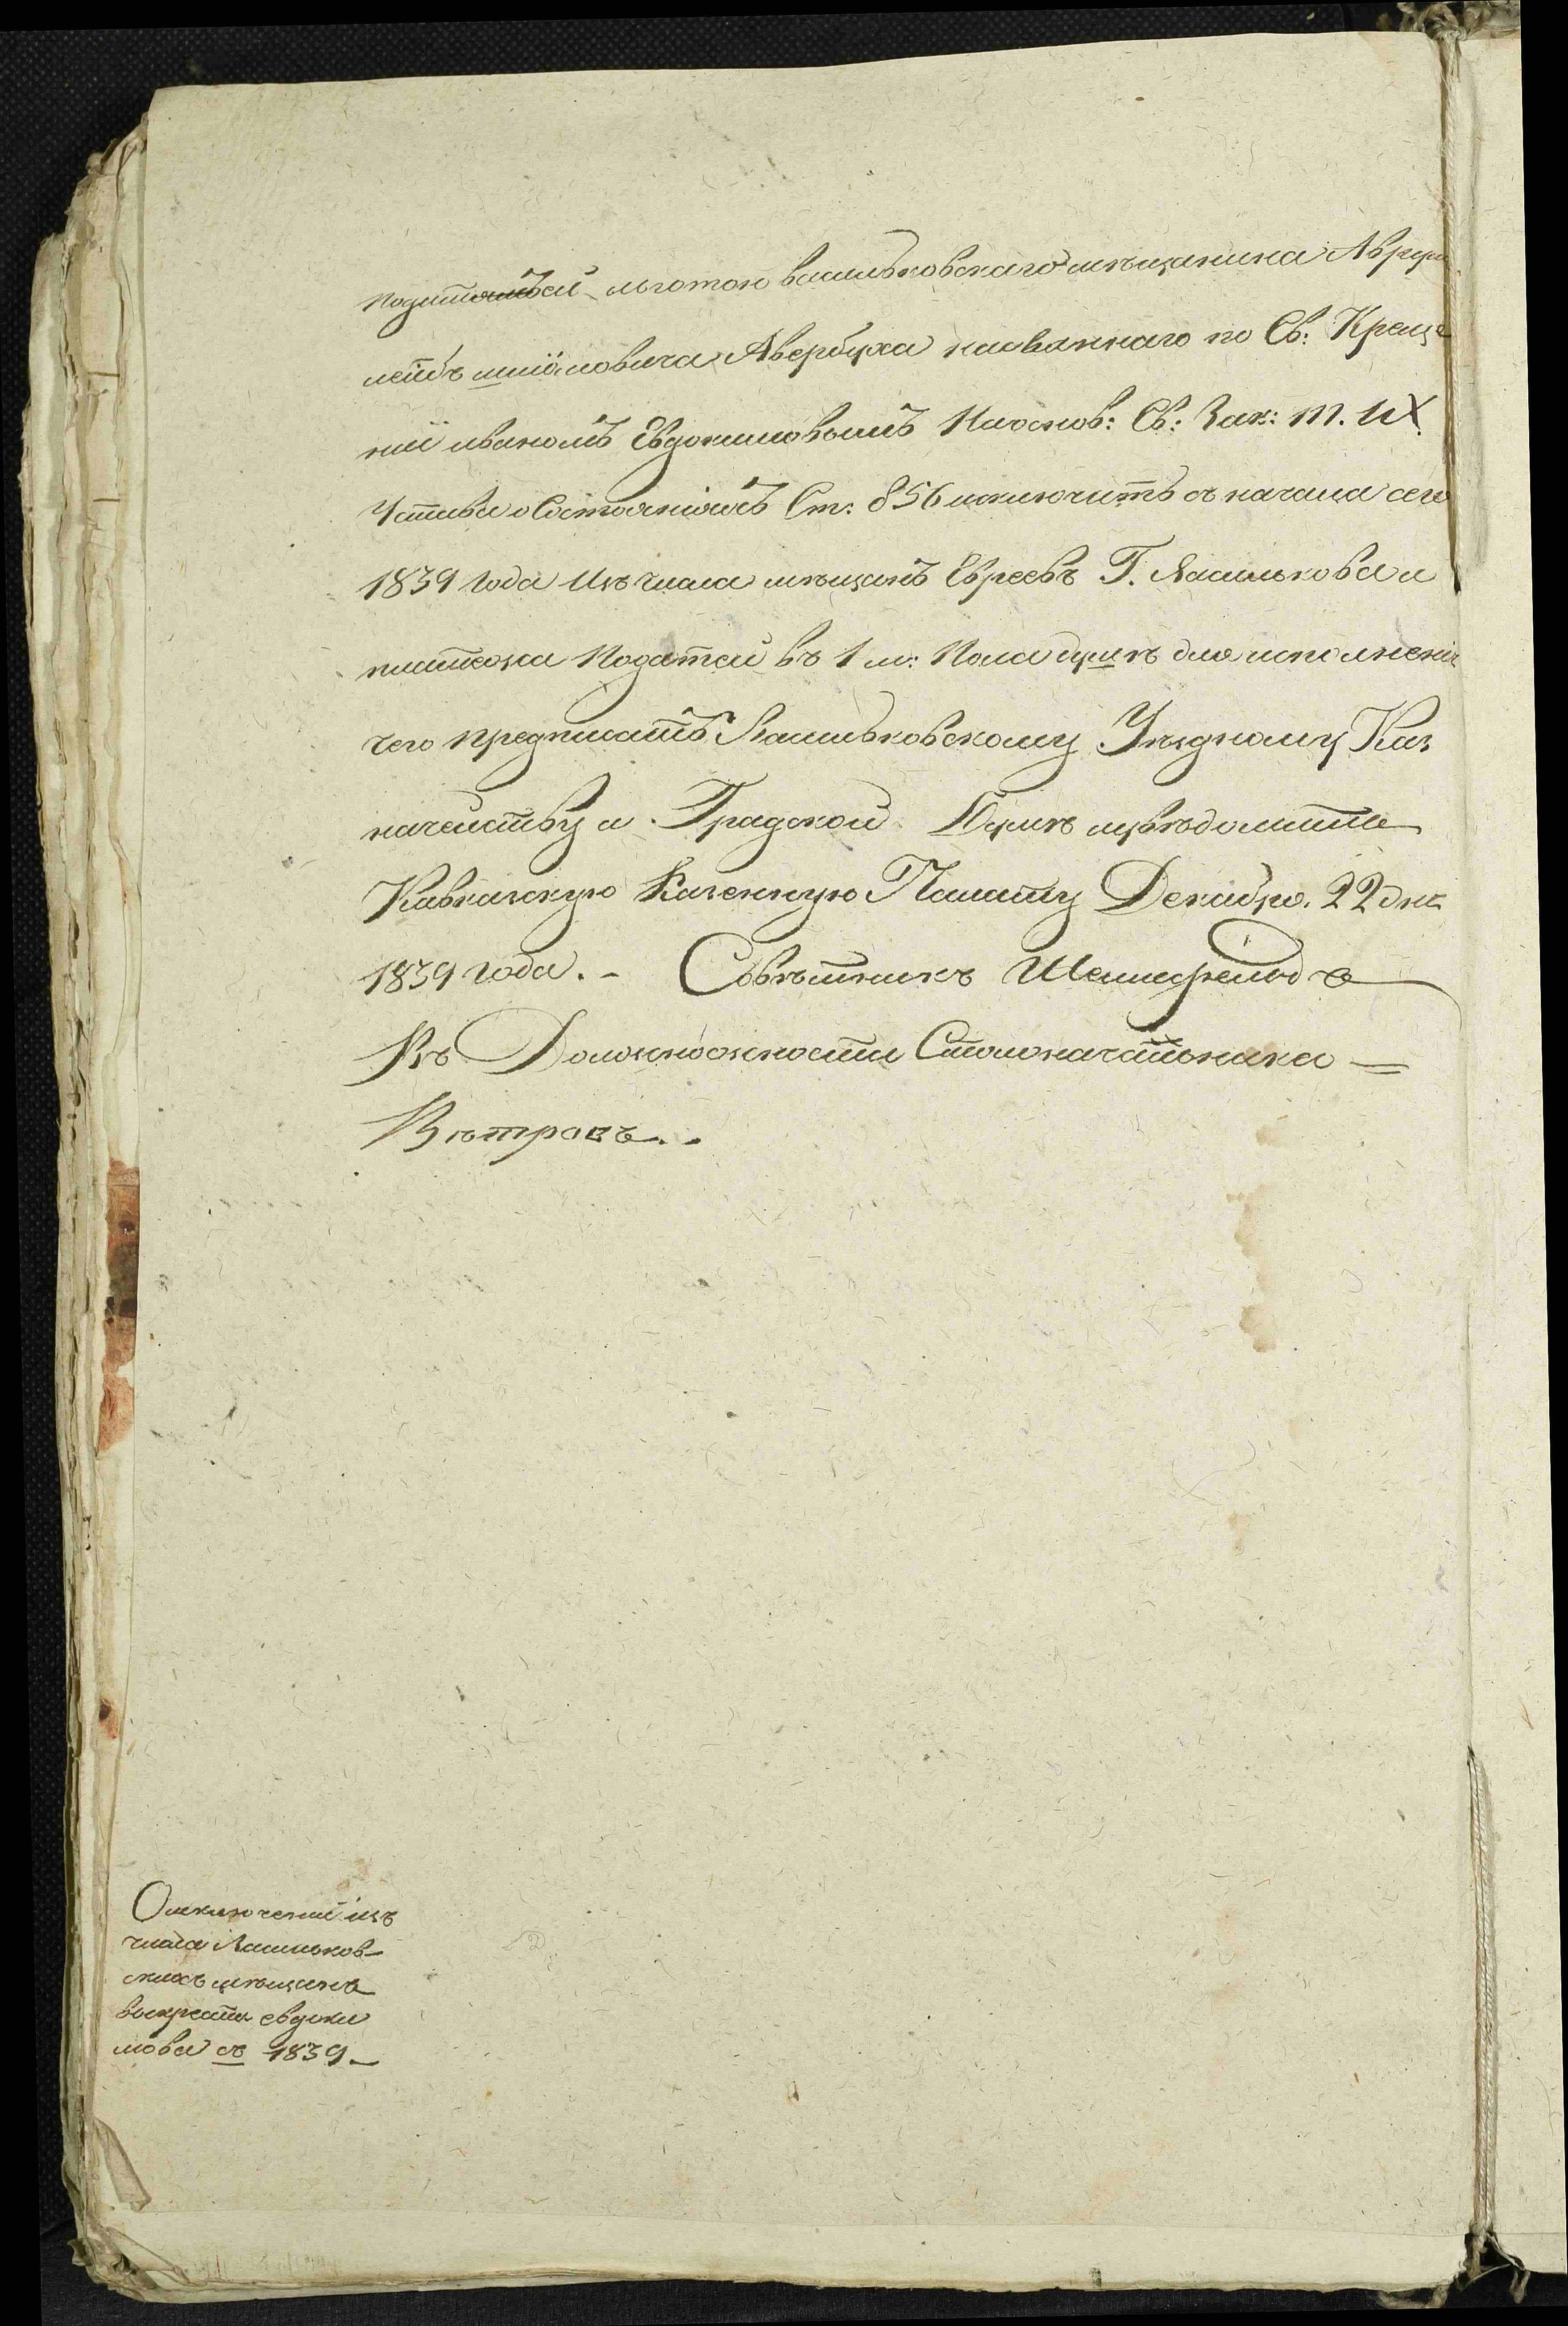 податьей льготою васильковскаго мѣщанина Аврум
лейбъ шиiомовича Авербуха названнаго по Св: Креще
нiи иваномъ Евдокимовымъ На основ: Св: Зак: т. IX
Устава о Состоянiяхъ Ст: 856 исключить съ начала сего
1839 года Изъ числа мѣщанъ Евреевъ Г. Василькова и
платежа Податей въ 1 м: Пола душѣ для исполненiя
чего предписать Васильковскому Уѣздному Каз
начейству и Градской Думѣ иувѣдомить
Кавказскую Казенную Палату Декабря. 22 дня
1839 года. - Совѣтникъ Шемшфельдъ
Въ Должностности Столоначальника =
Вѣтровъ. -
О исключенiи изъ
числа Васильков-
скихъ мѣщанъ
выкреста евдоки
мова съ 1839 -